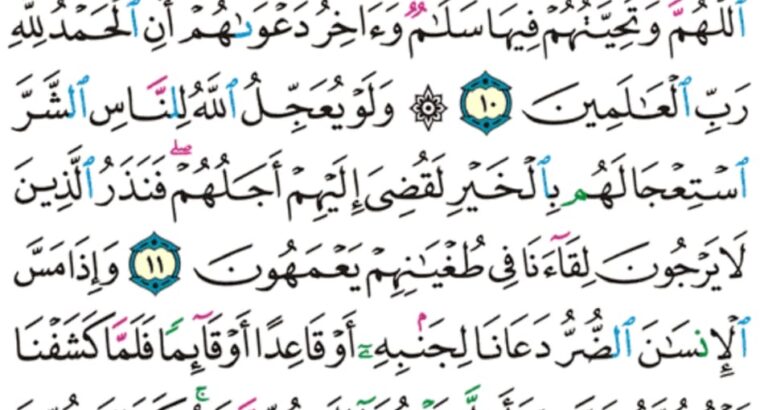 ٱللَّهُمَّ وَتَحِيَّتُهُمْ فِيهَا سَلَٰمٌ وَءَاخِرُ دَعْوَىٰهُمْ أَنِ ٱلْحَمْدُ لِلَّهِ
رَبِّ ٱلْعَٰلَمِينَ ١٠ ۞ وَلَوْ يُعَجِّلُ ٱللَّهُ لِلنَّاسِ ٱلشَّرَّ
ٱسْتِعْجَالَهُم بِٱلْخَيْرِ لَقُضِىَ إِلَيْهِمْ أَجَلُهُمْ ۖ فَنَذَرُ ٱلَّذِينَ
لَا يَرْجُونَ لِقَآءَنَا فِى طُغْيَٰنِهِمْ يَعْمَهُونَ ١١ وَإِذَا مَسَّ
ٱلْإِنسَٰنَ ٱلضُّرُّ دَعَانَا لِجَنۢبِهِۦٓ أَوْ قَاعِدًا أَوْ قَآئِمًا فَلَمَّا كَشَفْنَا